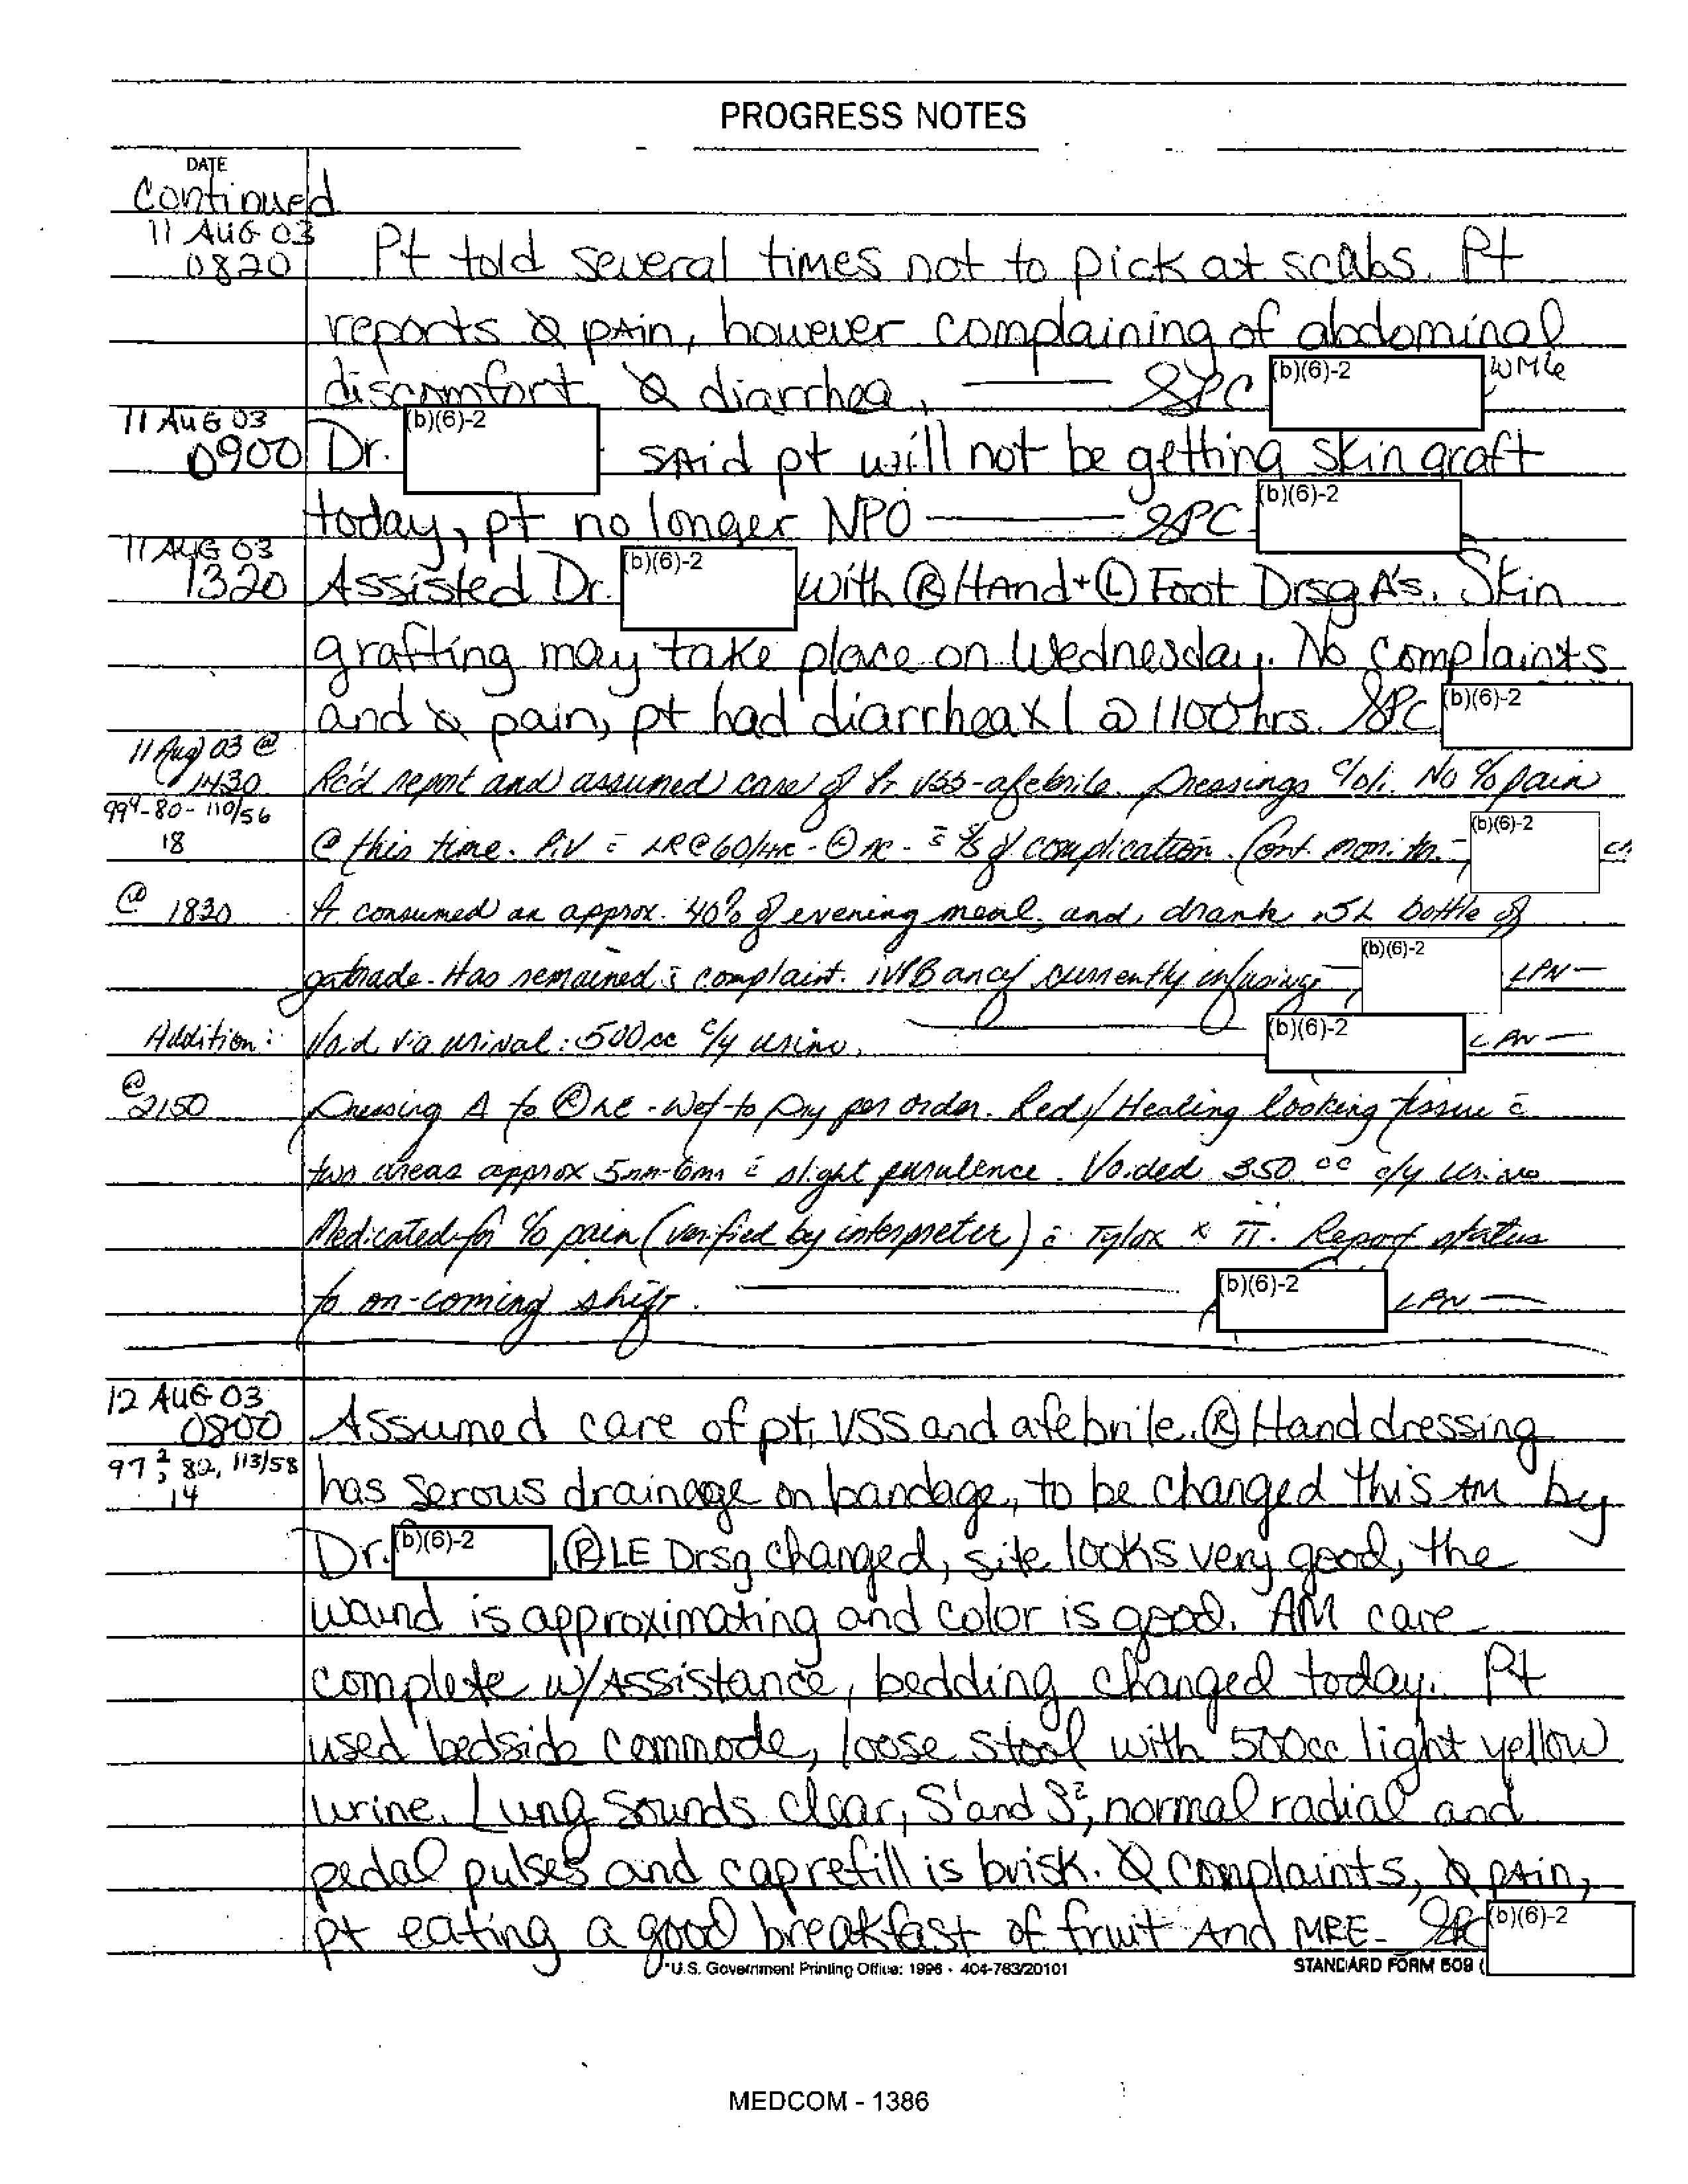 PROGRESS NOTES
DATE
Continued
11 AUG 03
0820 Pt told several times not to pick at scabs. Pt
reports Ø pAin, however complaining of abdominal
discomfort Ø diarrhea, SPC (b)(6)-2 WM6
11 AUG 03
0900 Dr. (b)(6)-2 sAid pt will not be getting skin graft
today, pt no longer NPO SPC (b)(6)-2
11 AUG 03
1320 Assisted Dr. (b)(6)-2 with Ⓡ HAnd + Ⓛ Foot Drsg Δ's. Skin
grafting may take place on Wednesday. No complaints
and Ø pain, pt had diarrhea x 1 @ 1100 hrs. SPC (b)(6)-2
11 Aug 03 @
1430 Rc'd report and assumed care of Pt. VSS - afebrile. Dressings c/d/i. No c/o pain
99⁴-80-110/56
18 @ this time. PIV c̄ LR@60/hr - s̄ s/s of complication. Cont. monitor. (b)(6)-2
@ 1830 Pt consumed an approx. 40% of evening meal, and, drank .5L bottle of
gatorade. Has remained s̄ complaint. IVPB ancef currently infusing (b)(6)-2 LPN
Addition: Void via urinal: 500cc c/y urine. (b)(6)-2 LPN
@
2150 Dressing Δ to Ⓡ LE - wet-to Dry per order. Red/Healing looking tissue c̄
two areas approx 5mm-6mm c̄ slight purulence. Voided 350 cc c/y urine
Medicated for c/o pain (verified by interpreter) c̄ Tylox x II. Report status
to on-coming shift. (b)(6)-2 LPN
12 AUG 03
0800 Assumed care of pt, VSS and afebrile. Ⓡ Hand dressing
97², 82, 113/58
14 has serous drainage on bandage, to be changed this AM by
Dr. (b)(6)-2, Ⓡ LE Drsg changed, site looks very good, the
wound is approximating and color is good. AM care
complete w/Assistance, bedding changed today. Pt
used bedside commode, loose stool with 500cc light yellow
urine. Lung sounds clear, S¹ and S², normal radial and
pedal pulses and cap refill is brisk. Ø complaints, Ø pAin,
pt eating a good breakfast of fruit And MRE - SPC (b)(6)-2
*U.S. Government Printing Office: 1996 - 404-763/20101
STANDARD FORM 509 (
MEDCOM - 1386